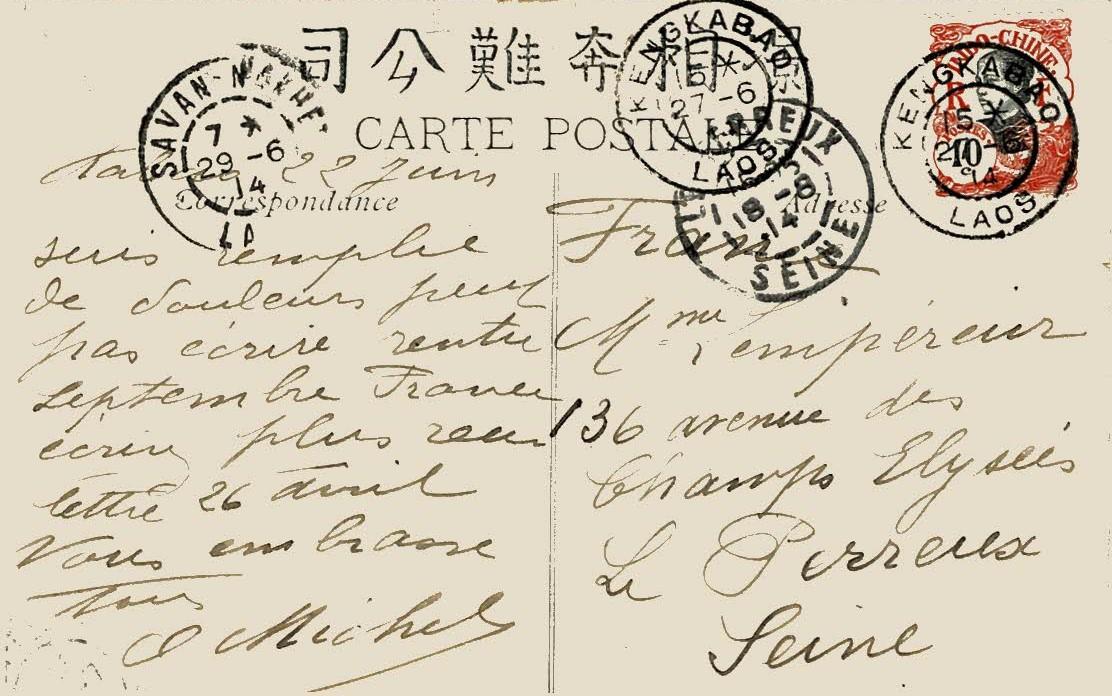 司公難奔相景
CARTE POSTALE
Correspondance
Adresse
INDO-CHINE
10
KENGKABAO
15 *
27-6
14
LAOS
KENGKABAO
15 *
27-6
LAOS
SAVAN-NAKHET
7 *
29-6
14
LA
LE PERREUX
18-8
14
SEINE
22 Juin
suis remplie
de douleurs peux
pas écrire rentre
Septembre France
écrire plus
lettre 26 avril
Vous embrasse
Tous
Michel
France
Mme Lempéreur
136 avenue des
Champs Elysées
Le Perreux
Seine